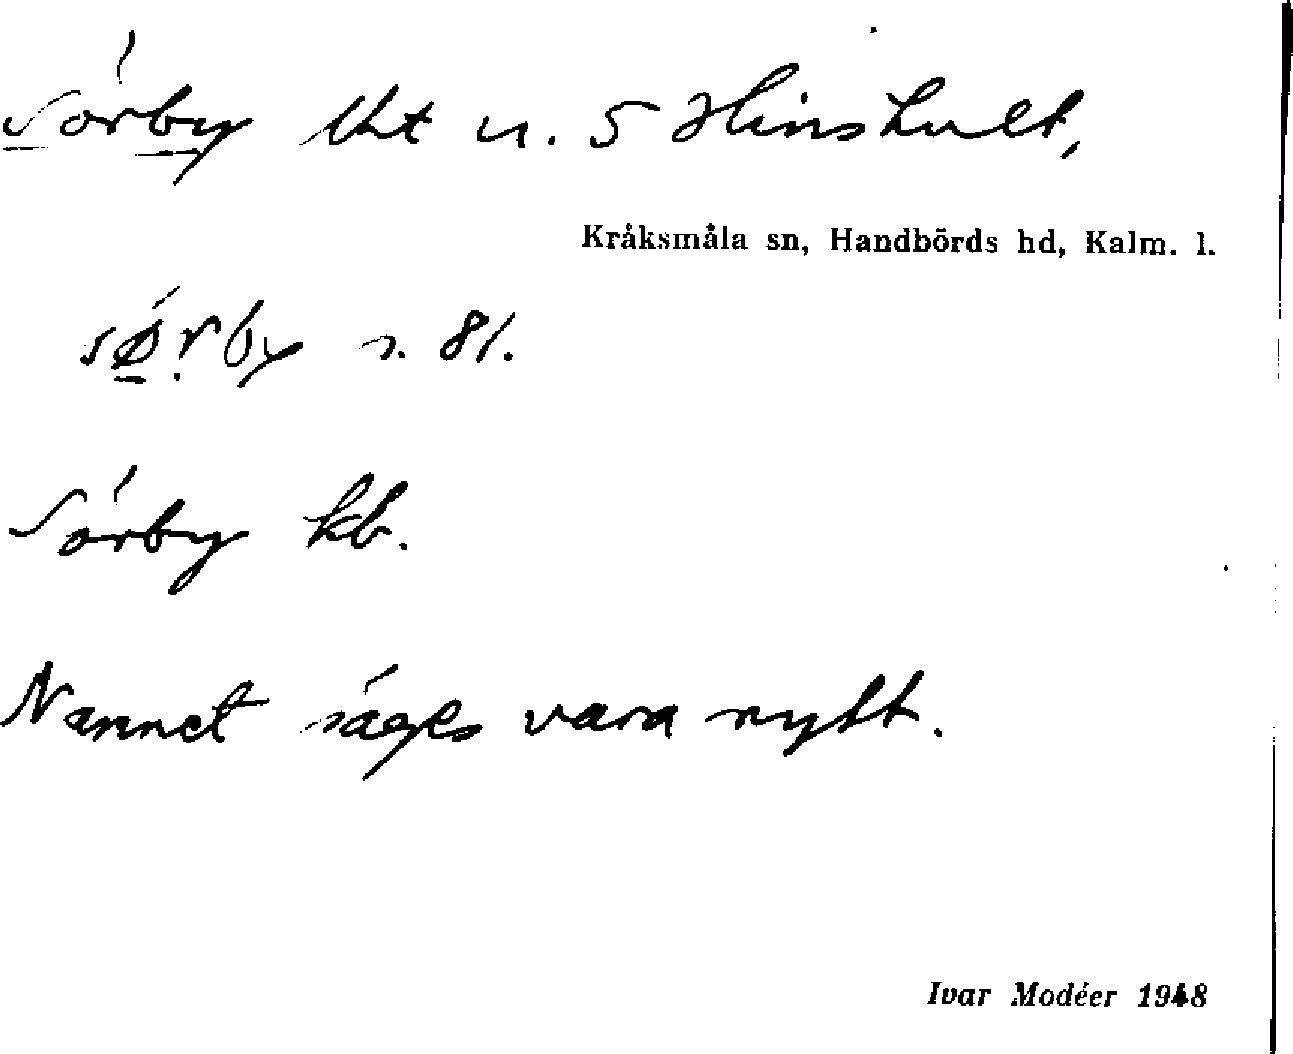 Sörby lht u. 5 Hinshult,
Kråksmåla sn, Handbörds hd, Kalm. l.
sø̱ṛby s. 81.
Sörby kb.
Namnet säges vara nytt.
Ivar Modéer 1948